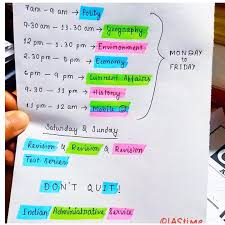 7am - 9 am → Polity
9.30 am - 11.30 am → Geography
12 pm - 1.30 pm → Environment
2.30pm - 5 pm → Economy
6pm - 9 pm → Current Affairs
9.30 - 11 pm → History
11 pm - 12 am → Mobile
MONDAY
to
FRIDAY
Saturday & Sunday
Revision & Revision & Revision
Test Series
DON'T QUIT!
Indian Administrative Service
@IAStime